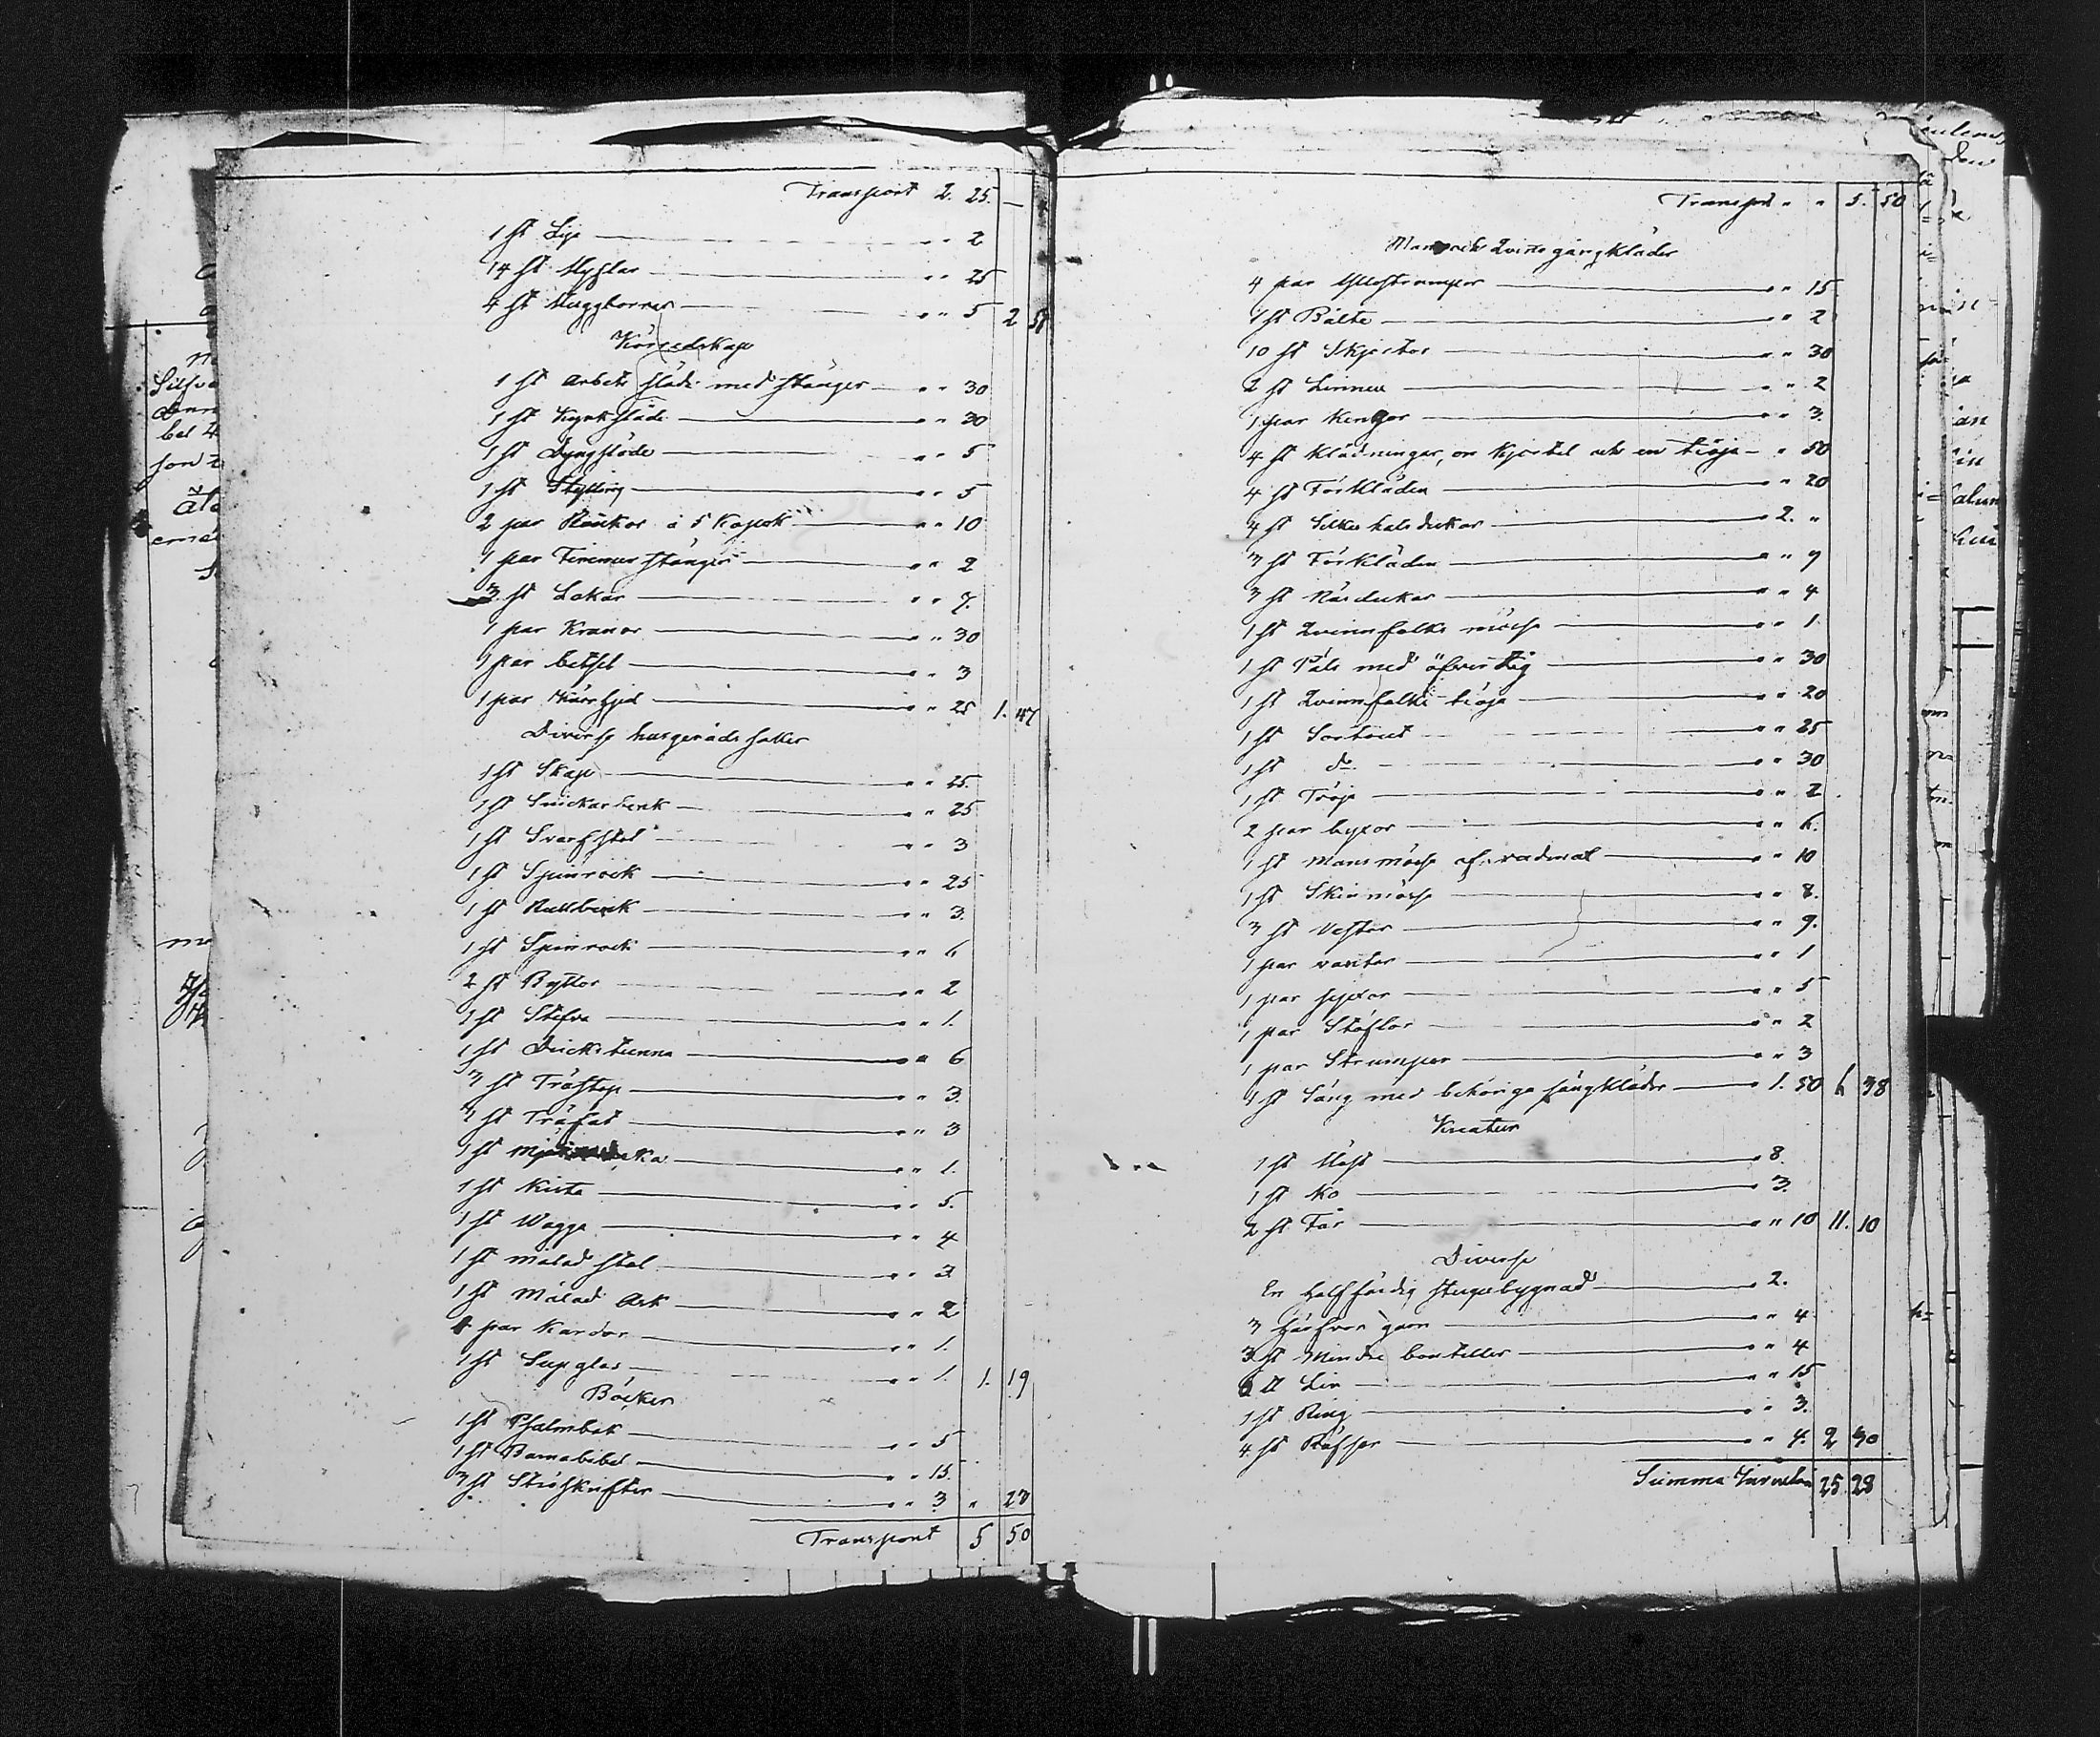 Transport 2. 25. —
1 st Lije " " 2
14 st Hyflar " " 25
4 st Huggborrar " " 5 2 57
Köredskap
1 st arbets släde med stänger " " 30
1 st Kyrksläde " " 30
1 st Dyngsläde " " 5
1 st Stytting " " 5
2 par Rankor á 5 Kopek " " 10
1 par Timmer stänger " " 2
3 st Lokar " " 7.
1 par Kranor " " 30
1 par betsel " " 3
1 par Kärrhjul " " 25 1. 47
Diverse husgeråds saker
1 st Skåp " " 25.
1 st Snickarbenk " " 25
1 st Svarfstol " " 3
1 st Spinrock " " 25
1 st Rullbenk " " 3.
1 st Spinrock " " 6
2 st Byttor " " 2
1 st Stefva " " 1.
1 st Dricks tunna " " 6
3 st Trästop " " 3.
3 st Träfat " " 3
1 st " " 1.
1 st Kista " " 5.
1 st Wagga " " 4
1 st målad stol " " 3
1 st Målad Ask " " 2
1 par Kardor " " 1.
1 st Supglas " " 1. 1. 19
Böcker
1 st Psalmbok " " 5
1 st Barnabibel " " 15.
3 st Ströskrifter " " 3 " 23
Transport 5 50
Transport " " 5. 50
Mans och Qvins gångkläder
4 par Yllestrumpor " " 15
1 st Bälte " " 2
10 st Skjortor " " 30
2 st Linnen " " 2
1 par Kengor " " 3.
4 st Klädningar, en Kjortel och en tröja " 50
4 st Förkläden " " 20
4 st Silkes halsdukar " 2. "
3 st Förkläden " " 9
3 st Näsdukar " " 4
1 st Qvinnfolks mössa " " 1
1 st Päls med öfvertyg " " 30
1 st Qvinnfolks tröja " " 20
1 st Sortout " " 25
1 st do " " 30
1 st Tröja " " 2
2 par byxor " " 6.
1 st Mansmössa af vadmal " " 10
1 st Skinmössa " " 8.
3 st Vestar " " 9.
1 par vantar " " 1
1 par pjexor " " 5
1 par Stöflor " " 2
1 par Strumpor " " 3
1 st Säng med behöriga sängkläder " 1. 50 6 38
Kreatur
1 st Häst " 8.
1 st Ko " 3.
2 st Får " " 10 11. 10
Diverse
En halffärdig stugubygnad " 2.
3 härfvor garn " " 4
3 st Mindre bouteller " " 4
Lin " " 15
1 st Ring " " 3.
4 st Räfsor " " 4. 2 30
Summa Inventarii 25 28